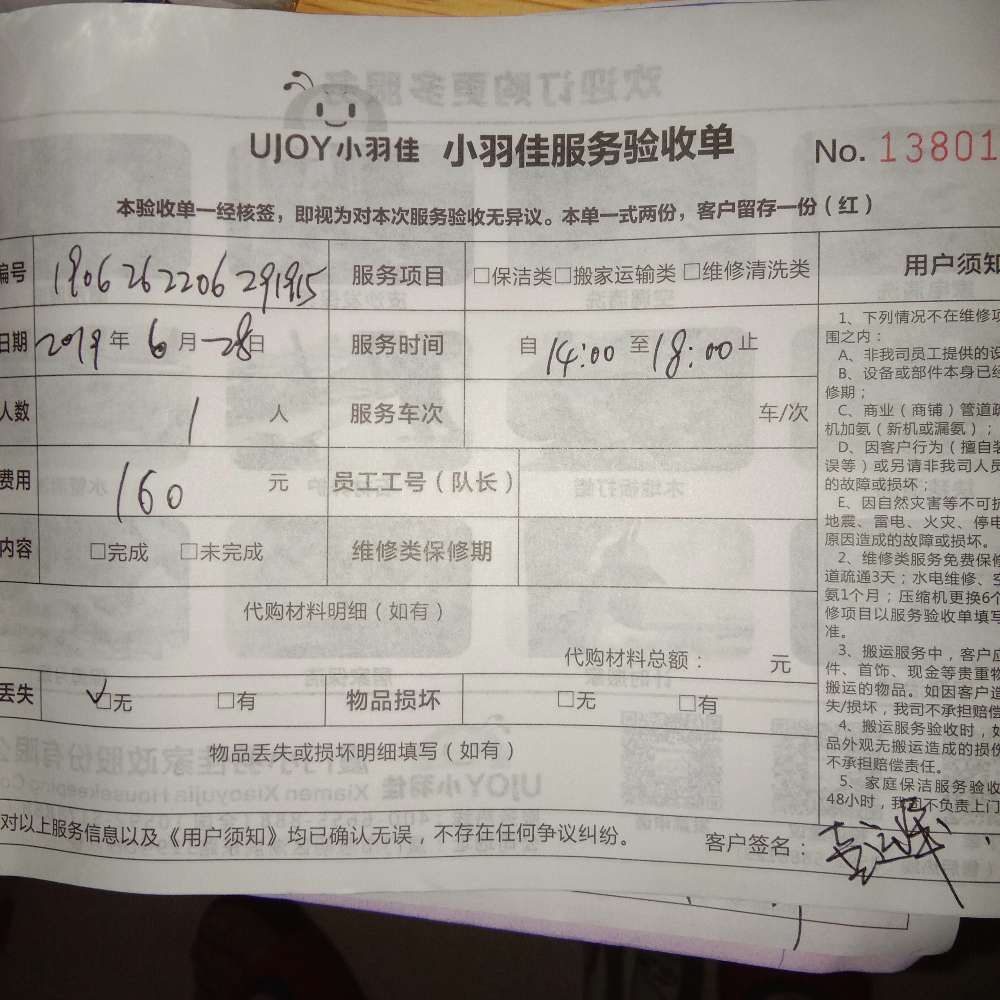 UJOY小羽佳 小羽佳服务验收单 No. 13801
本验收单一经核签，即视为对本次服务验收无异议。本单一式两份，客户留存一份（红）
编号 1906262206291915 服务项目 □保洁类□搬家运输类 □维修清洗类
日期 2019年 6月 28日 服务时间 自14:00至18:00止
人数 1 人 服务车次 车/次
费用 160 元 员工工号（队长）
内容 □完成 □未完成 维修类保修期
代购材料明细（如有）
代购材料总额： 元
丢失 ☑无 □有 物品损坏 □无 □有
物品丢失或损坏明细填写（如有）
对以上服务信息以及《用户须知》均已确认无误，不存在任何争议纠纷。 客户签名：
用户须知
1、下列情况不在维修项
围之内：
A、非我司员工提供的设
B、设备或部件本身已经
修期；
C、商业（商铺）管道疏
机加氨（新机或漏氨）；
D、因客户行为（擅自装
误等）或另请非我司人员
的故障或损坏；
E、因自然灾害等不可抗
地震、雷电、火灾、停电
原因造成的故障或损坏。
2、维修类服务免费保修
道疏通3天；水电维修、空
氨1个月；压缩机更换6个
修项目以服务验收单填写
准。
3、搬运服务中，客户应
件、首饰、现金等贵重物
搬运的物品。如因客户造
失/损坏，我司不承担赔偿
4、搬运服务验收时，如
品外观无搬运造成的损伤
不承担赔偿责任。
5、家庭保洁服务验收
48小时，我司不负责上门